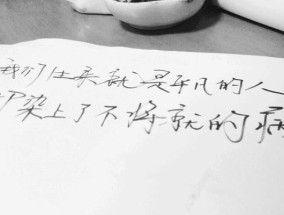 我们生来就是平凡的人
染上了不将就的病